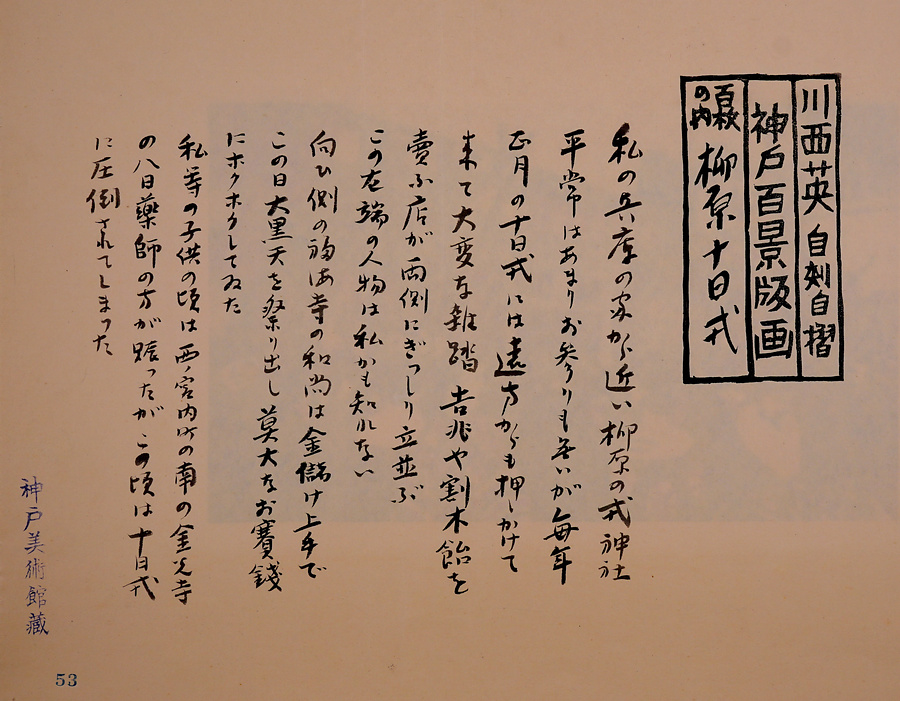 川西英 自刻自摺
神戸百景版画
百枚の内 柳原十日戎
私の兵庫の家から近い柳原の戎神社
平常はあまりお参りも無いが毎年
正月の十日戎には遠方からも押しかけて
来て大変な雑踏 吉兆や割木飴を
賣ふ店が両側にぎっしり立並ぶ
この左端の人物は私かも知れない
向ひ側の福海寺の和尚は金儲け上手で
この日大黒天を祭り出し莫大なお賽錢
にホクホクしてゐた
私等の子供の頃は西ノ宮内町の南の金光寺
の八日藥師の方が賑ったがこの頃は十日戎
に圧倒されてしまった
神戸美術館藏
53